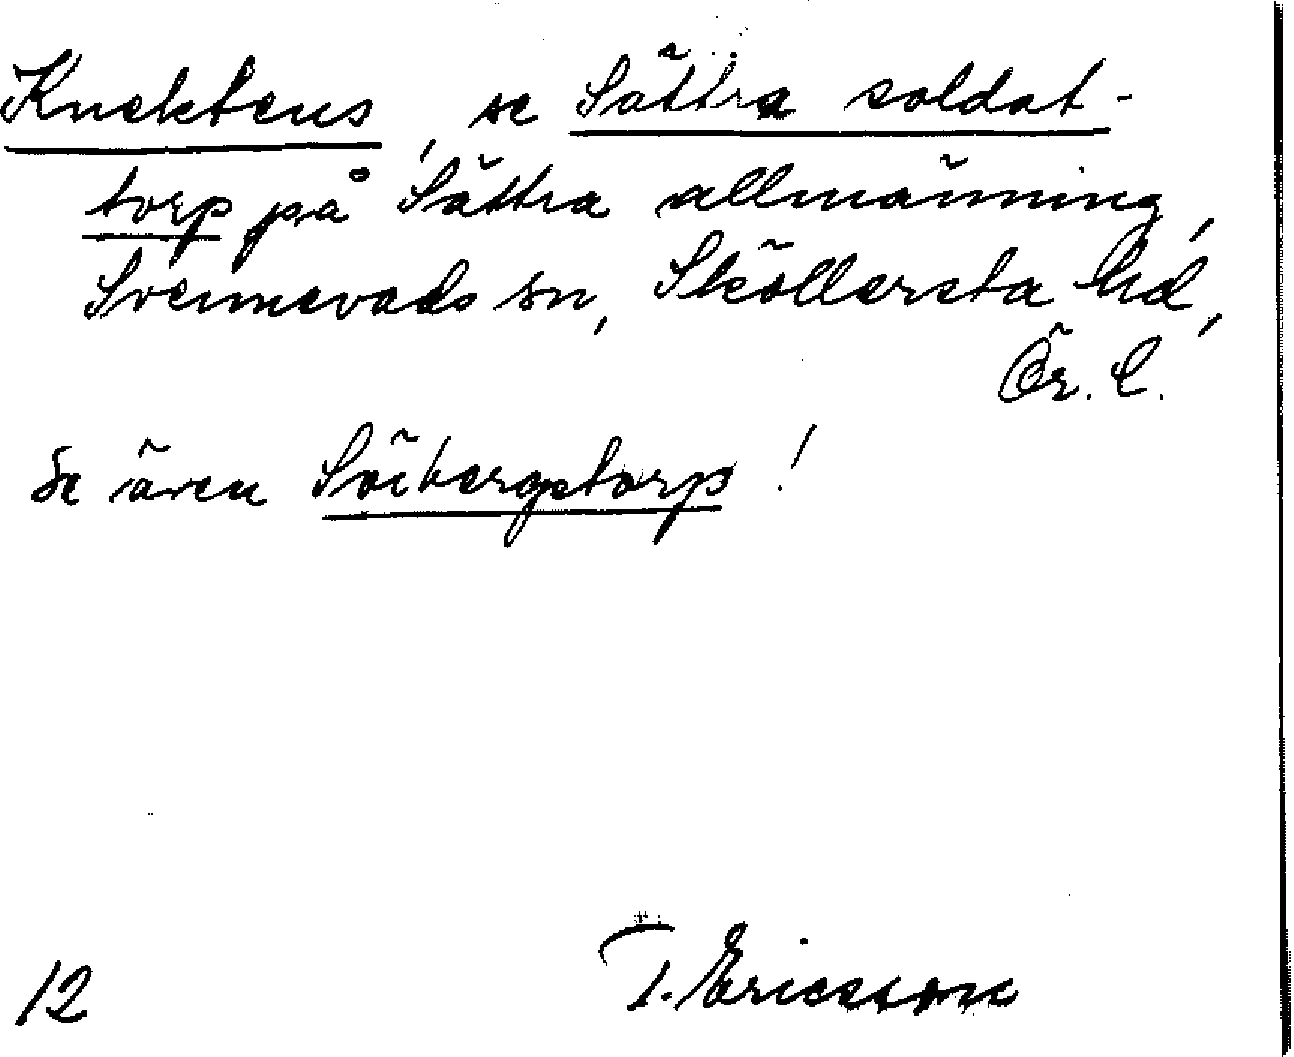 Knektens, se Sättra soldat-
torp på Sättra allmänning,
Svennevads sn, Sköllersta hd,
Ör. l.
Se även Söbergstorp!
12 T. Ericsson